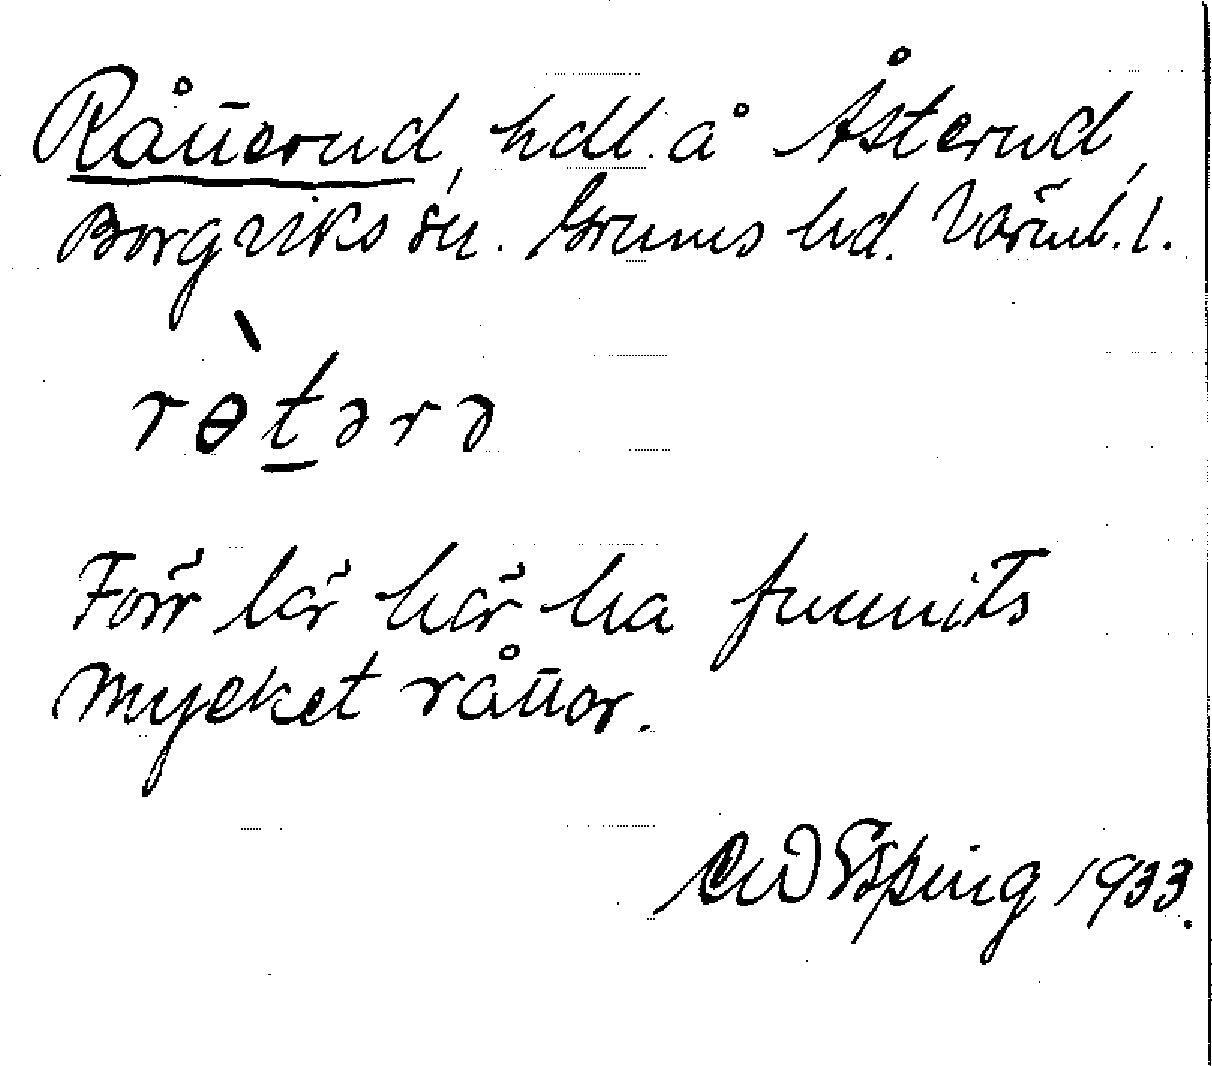 Råtterud, hdl. å Åsterud,
Borgviks sn. Grums hd. Värml. l.
rɵ̀tərə
Förr lär här ha funnits
mycket råttor.
Esping 1933.